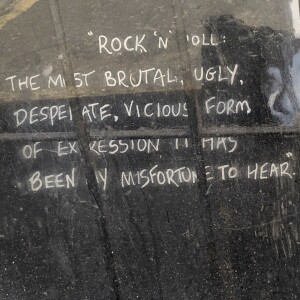 "ROCK 'N' ROLL:
THE MOST BRUTAL, UGLY,
DESPERATE, VICIOUS FORM
OF EXPRESSION IT HAS
BEEN MY MISFORTUNE TO HEAR"